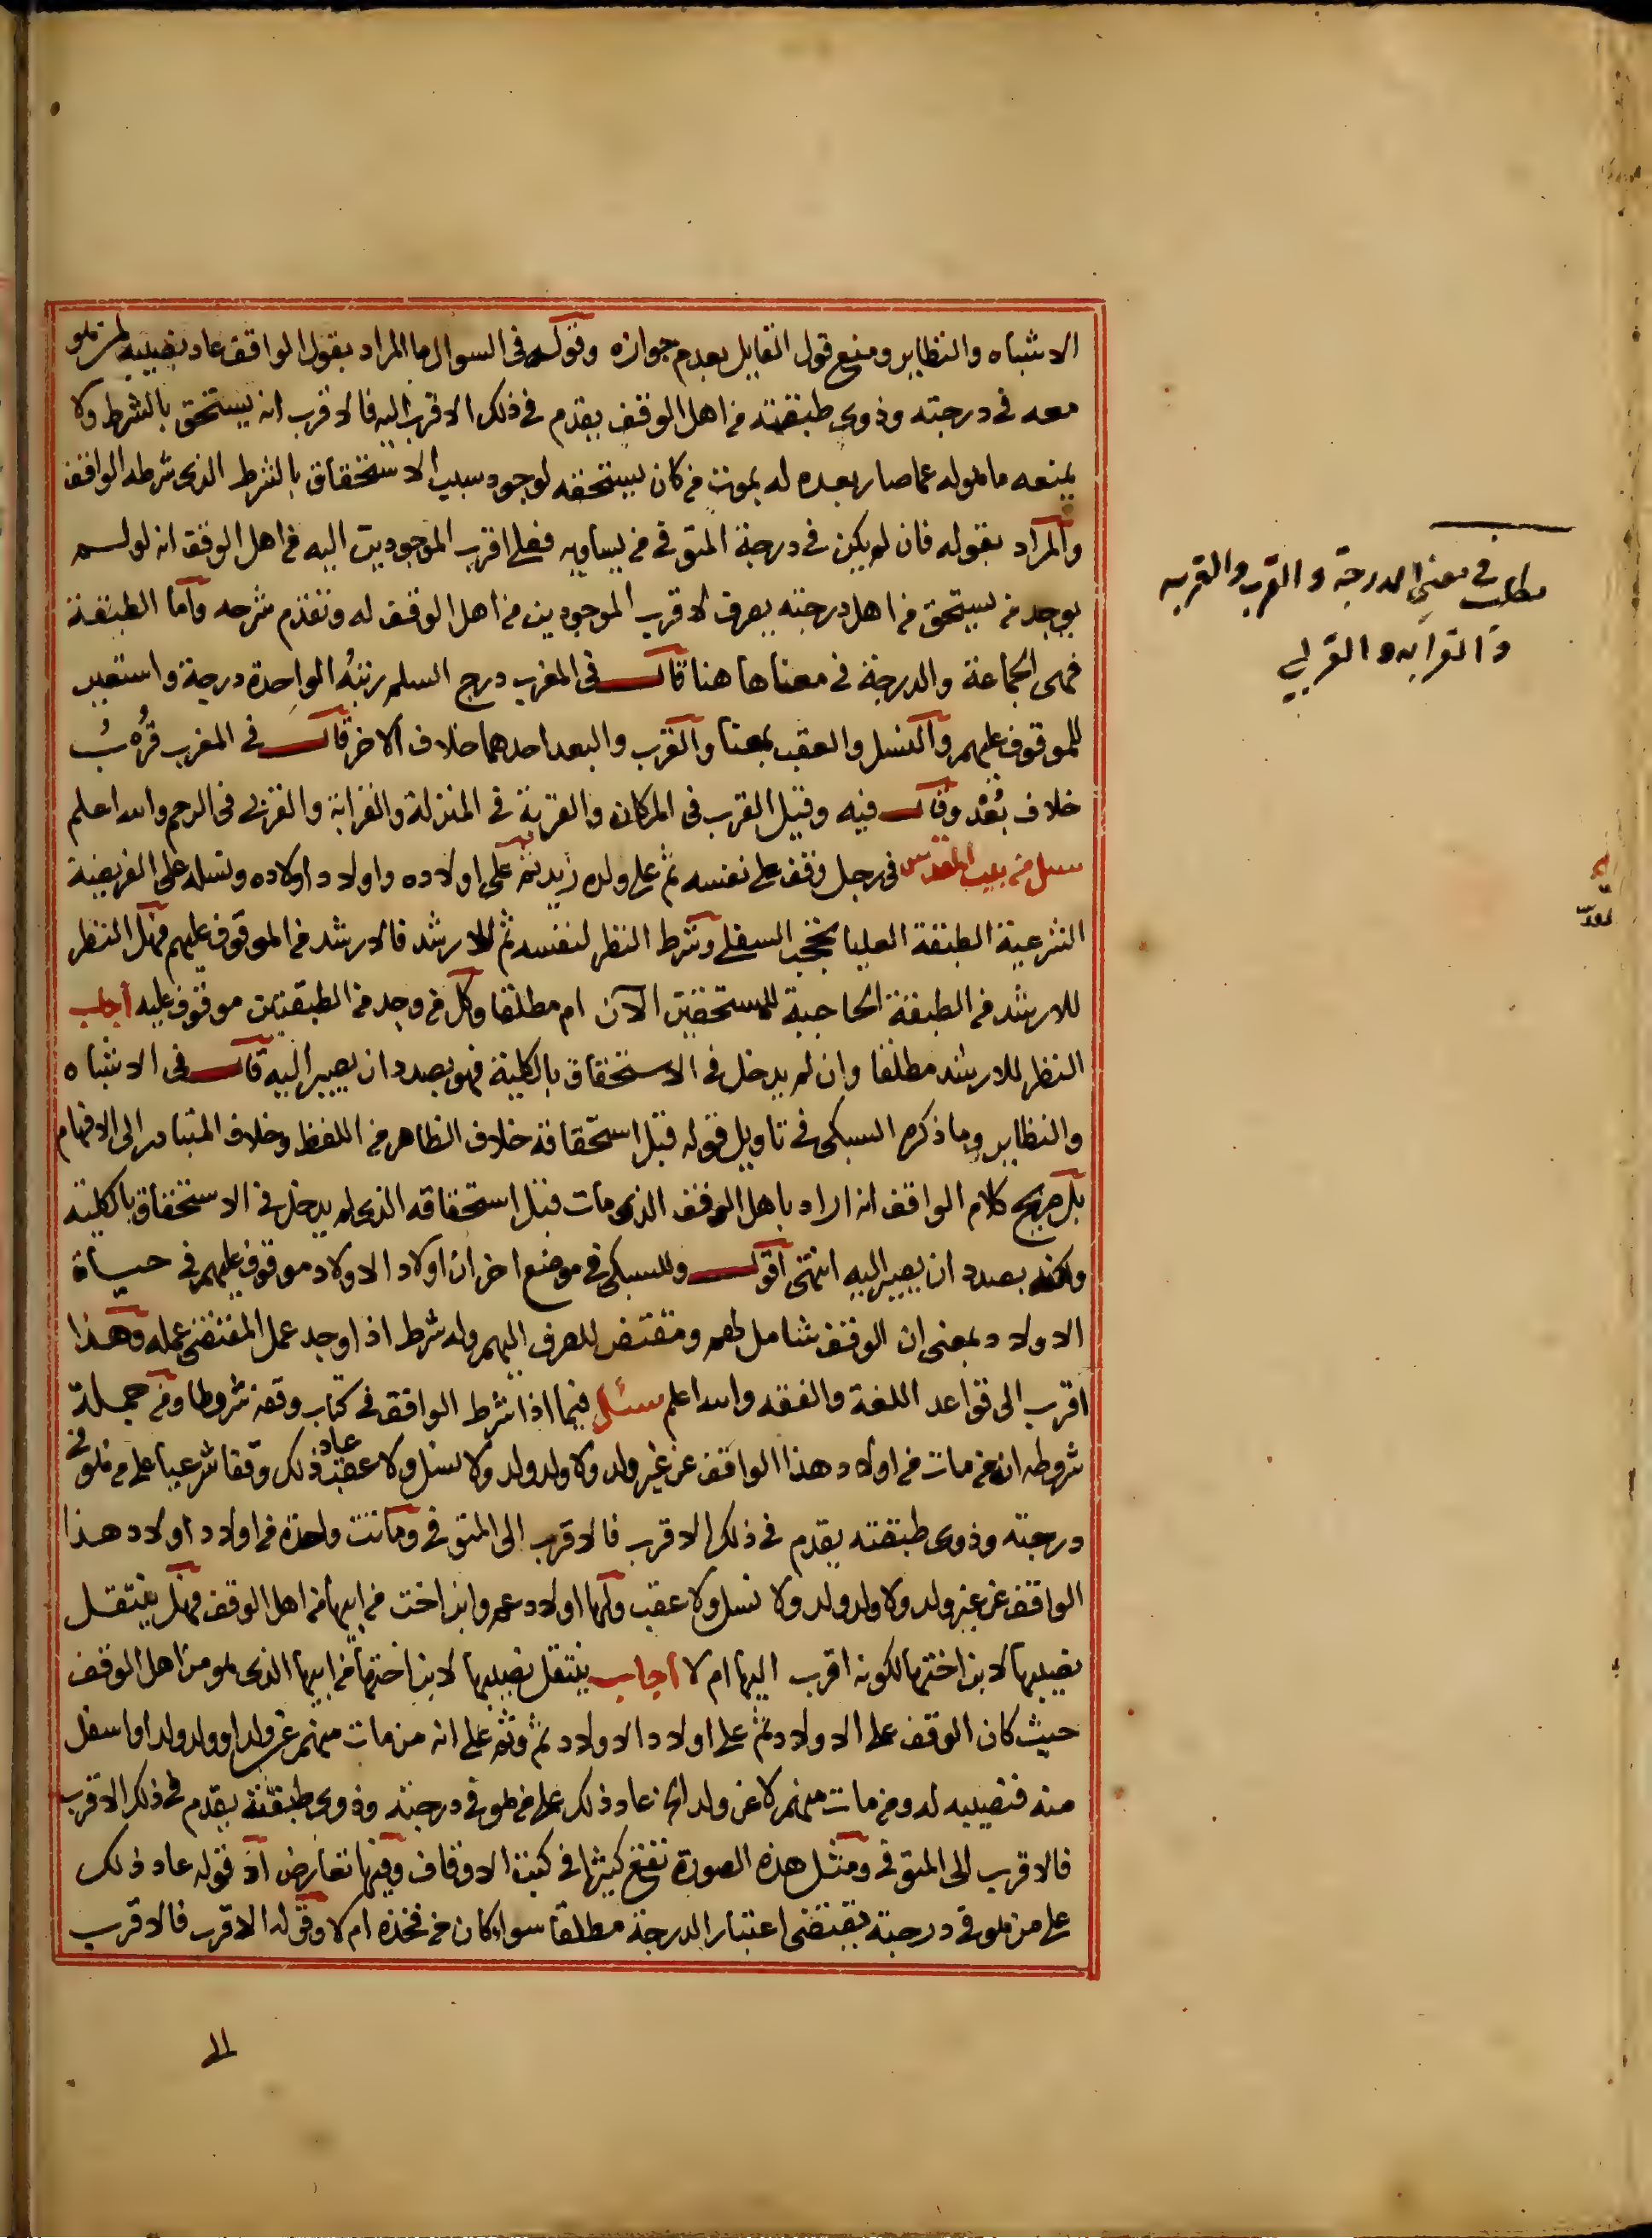 الاشباه والنظاير ومنع قول القايل بعدم جوازه وقوله فى السوال ما المراد بقول الواقف عاد نصيبه لمن هو
معه فى درجته وذوى طبقته من اهل الوقف يقدم فى ذلك الاقرب اليه فالاقرب انه يستحق بالشرط ولا
يمنعه ما هو له عما صار بعده له بموت من كان يستحقه لوجود سبب الاستحقاق بالشرط الذى شرطه الواقف
والمراد بقوله فان لم يكن فى درجة المتوفى من يساويه فعلى اقرب الموجودين اليه من اهل الوقف انه لو لم
يوجد من يستحق من اهل درجته يصرف لاقرب الموجودين من اهل الوقف له وتقدم شرحه وأما الطبقة
فهى الجماعة والدرجة فى معناها هنا قال فى المغرب درج السلم رتبه الواحدة درجة واستعير
للموقوف عليهم والنسل والعقب بمعنا والقرب والبعد احدهما خلاف الاخر قال فى المغرب قرب
خلاف بعد وقال فيه وقيل القرب فى المكان والقربة فى المنزلة والقرابة والقربى فى الرحم والله اعلم
سئل من بيت المقدس فى رجل وقف على نفسه ثم على ولده زيد ثم على اولاده واولاد اولاده ونسله على الفريضة
الشرعية الطبقة العليا تحجب السفلى وشرط النظر لنفسه ثم للارشد فالارشد من الموقوف عليهم فهل النظر
للارشد من الطبقة الحاجبة للمستحقين الآن ام مطلقا وكل من وجد من الطبقتين موقوف عليه اجاب
النظر للارشد مطلقا وان لم يدخل فى الاستحقاق بالكلية فهو بصدد ان يصير اليه قال فى الاشباه
والنظاير وما ذكره السبكى فى تاويل قوله قبل استحقاقه خلاف الظاهر من اللفظ وخلاف المتبادر الى الافهام
بل صريح كلام الواقف انه اراد باهل الوقف الذى مات قبل استحقاقه الذى لم يدخل فى الاستحقاق بالكلية
ولكنه بصدد ان يصير اليه انتهى اقول وللسبكى فى موضع اخر ان اولاد الاولاد موقوف عليهم فى حياة
الاولاد بمعنى ان الوقف شامل لهم ومقتض للصرف اليهم وله شرط اذا وجد عمل المقتضى عمله وهذا
اقرب الى قواعد اللغة والفقه والله اعلم سئل فيما اذا شرط الواقف فى كتاب وقفه شروطا ومن جملة
شروطه ان من مات من اولاد هذا الواقف عن غير ولد ولا ولد ولد ولا نسل ولا عقب عاد ذلك وقفا شرعيا على من هو فى
درجته وذوى طبقته يقدم فى ذلك الاقرب فالاقرب الى المتوفى وماتت واحدة من اولاد اولاد هذا
الواقف عن غير ولد ولا ولد ولد ولا نسل ولا عقب ولها اولاد عم وابن اخت من ابيها من اهل الوقف فهل ينتقل
نصيبها لابن اختها لكونه اقرب اليها ام لا اجاب ينتقل نصيبها لابن اختها من ابيها الذى هو من اهل الوقف
حيث كان الوقف على الاولاد ثم على اولاد الاولاد ثم وثم على انه من مات منهم عن ولد او ولد ولد او اسفل
منه فنصيبه له ومن مات منهم لا عن ولد الخ عاد ذلك على من هو فى درجته وذوى طبقته يقدم فى ذلك الاقرب
فالاقرب الى المتوفى ومثل هذه الصورة تقع كثيرا فى كتب الاوقاف وفيها تعارض اذ قوله عاد ذلك
على من هو فى درجته يقتضى اعتبار الدرجة مطلقا سواء كان من فخذه ام لا وقوله الاقرب فالاقرب
مطلب فى معنى الدرجة والقرب والقربه
والقرابه والقربى